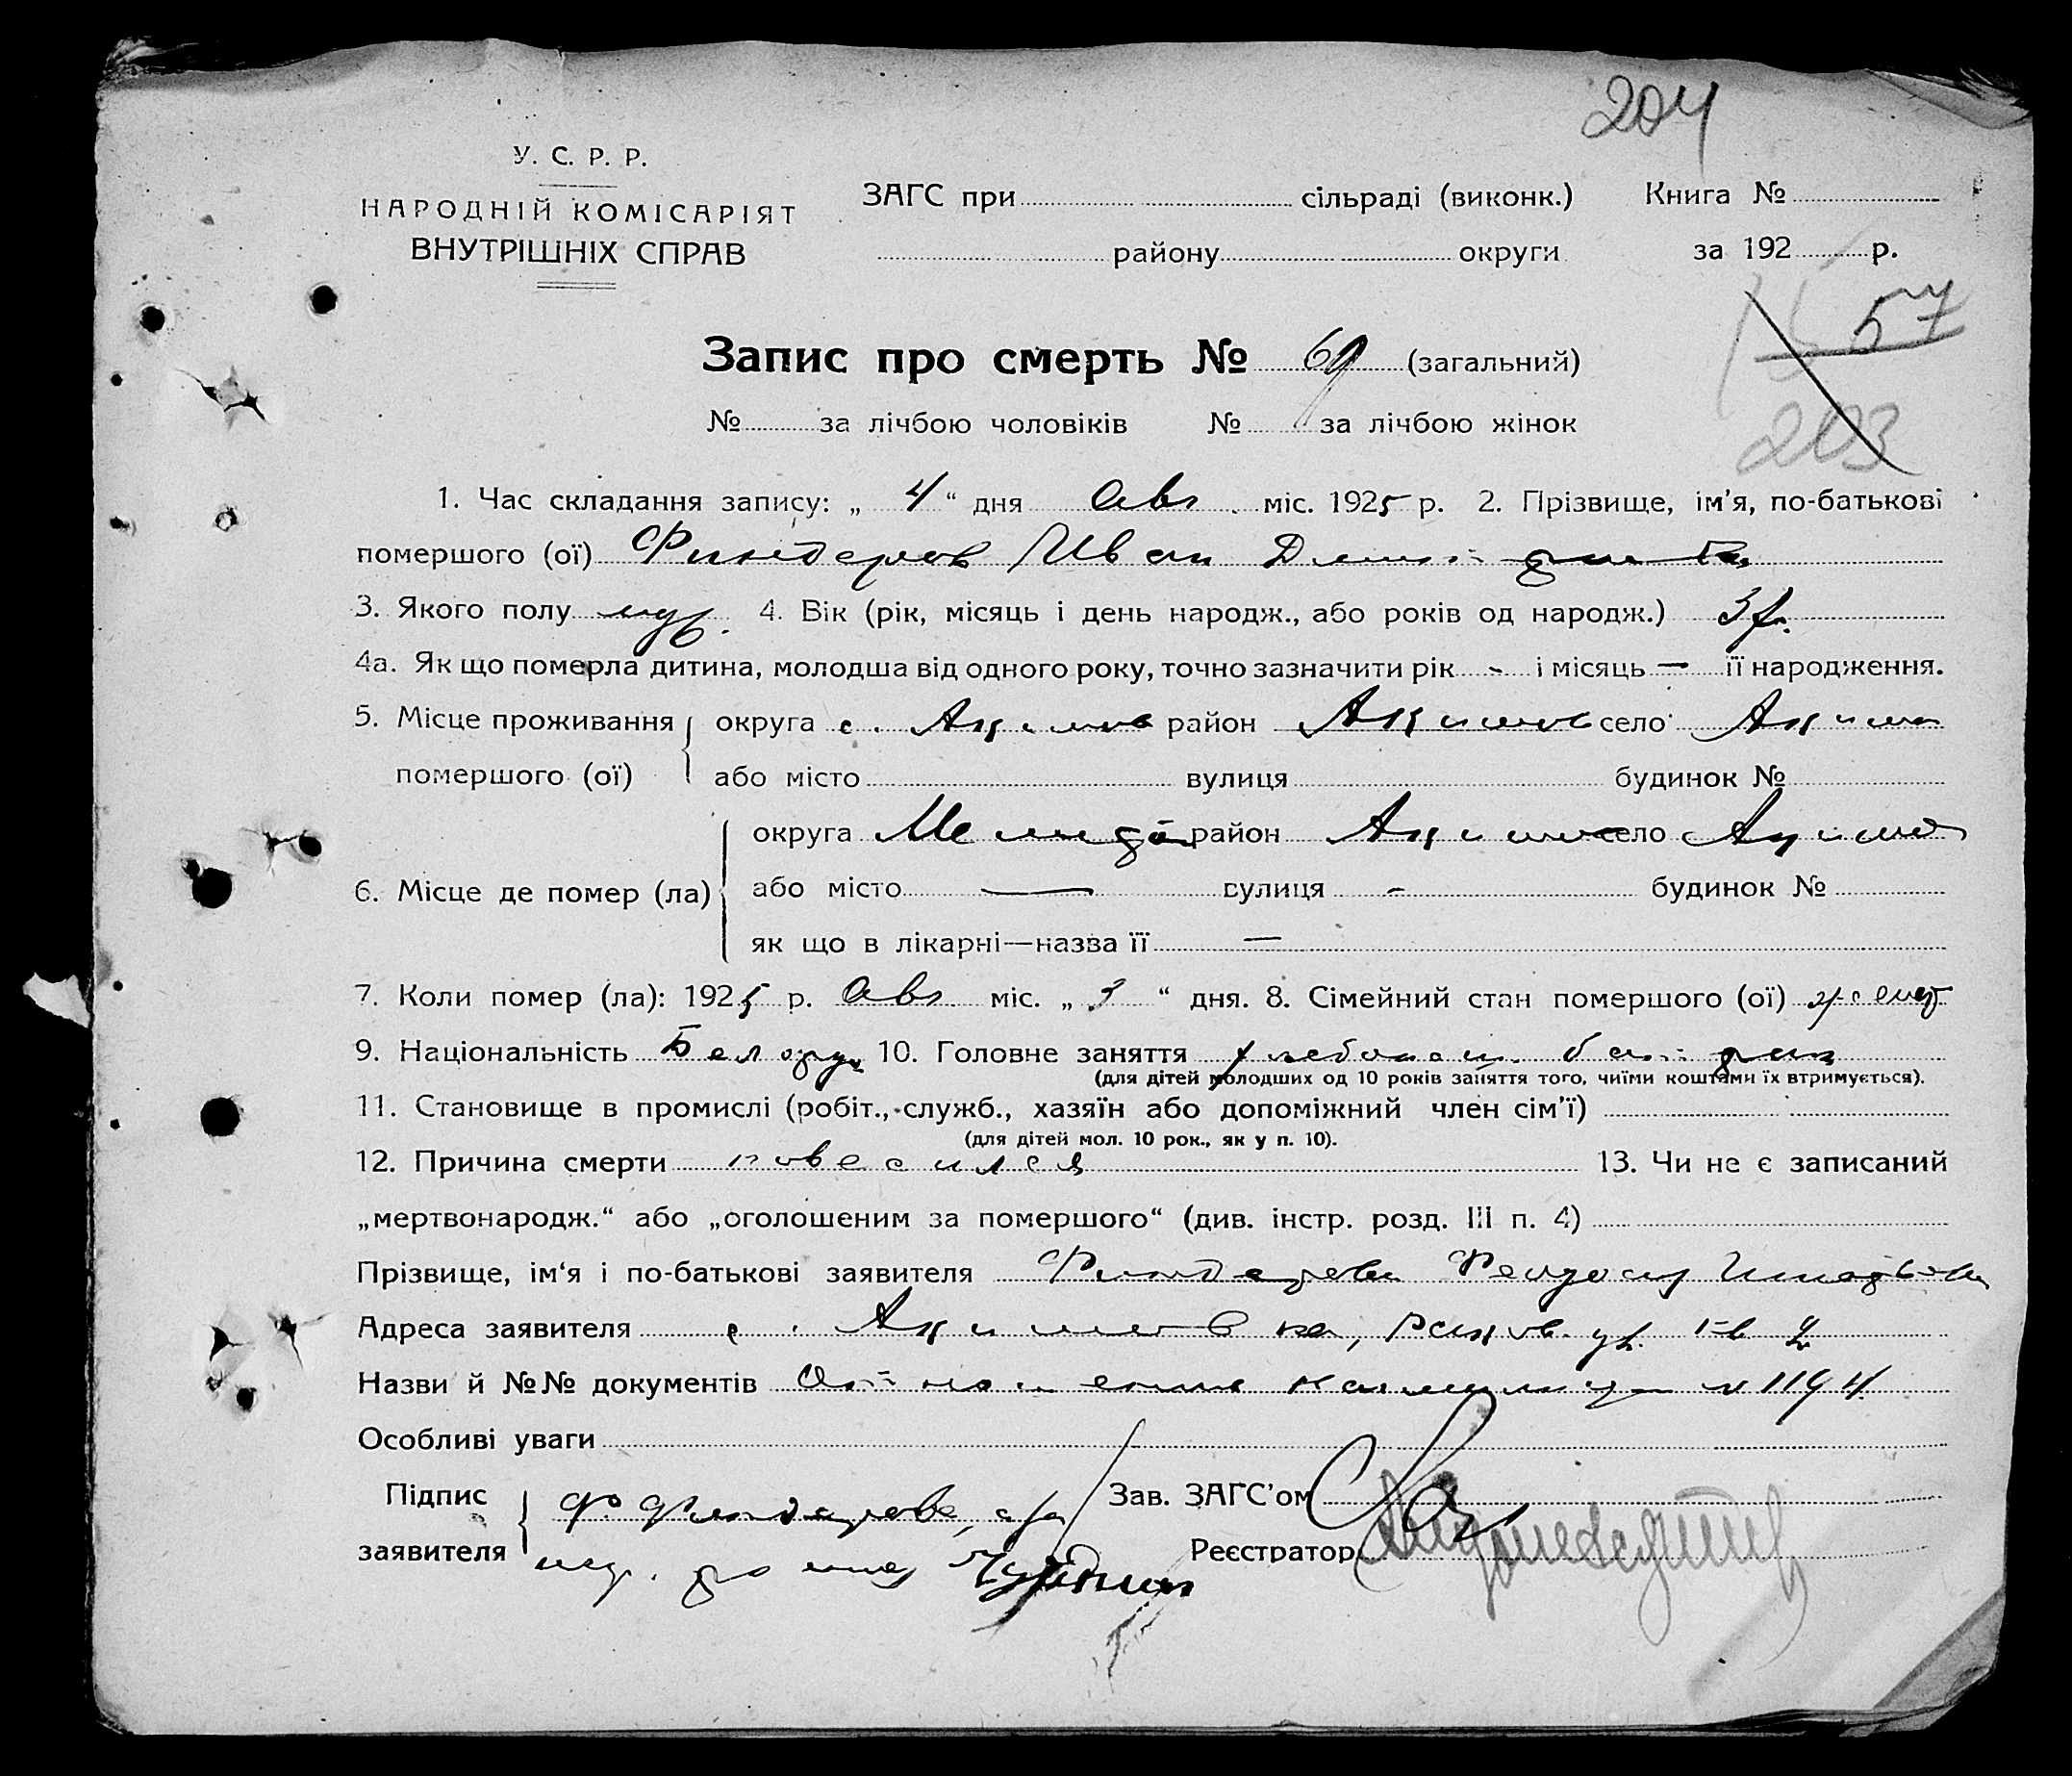 204
У. С. Р. Р.
НАРОДНІЙ КОМІСАРІЯТ
ВНУТРІШНІХ СПРАВ
ЗАГС при сільраді (виконк.) Книга №
району округи за 192 р.
57
203
Запис про смерть № 69 (загальний)
№ за лічбою чоловіків № за лічбою жінок
1. Час складання запису: „ 4 “ дня Авг. міс. 1925 р. 2. Прізвище, ім’я, по-батькові
помершого (ої) Финдеров Иван
3. Якого полу муж. 4. Вік (рік, місяць і день народж., або років од народж.)
4а. Як що померла дитина, молодша від одного року, точно зазначити рік - і місяць — її народження.
5. Місце проживання округа с. Акимов район Акимов село Аким
помершого (ої) або місто вулиця будинок №
округа Мелитоп район Акимов село Акимо
6. Місце де помер (ла) або місто — вулиця - будинок №
як що в лікарні—назва її —
7. Коли помер (ла): 1925 р. Авг міс. „ 3 “ дня. 8. Сімейний стан помершого (ої) женат
9. Національність Белорус 10. Головне заняття хлебопаш. батрак
(для дітей молодших од 10 років заняття того, чиїми коштами їх втримується).
11. Становище в промислі (робіт., служб., хазяїн або допоміжний член сім’ї)
(для дітей мол. 10 рок., як у п. 10).
12. Причина смерти повесился 13. Чи не є записаний
„мертвонародж.“ або „оголошеним за помершого“ (див. інстр. розд. III п. 4)
Прізвище, ім‘я і по-батькові заявителя Финдерова
Адреса заявителя с. Акимовка, ул. кв 2
Назви й №№ документів Отношение № 1194
Особливі уваги
Підпис Ф. Финдерова, Зав. ЗАГС’ом
заявителя Реєстратор